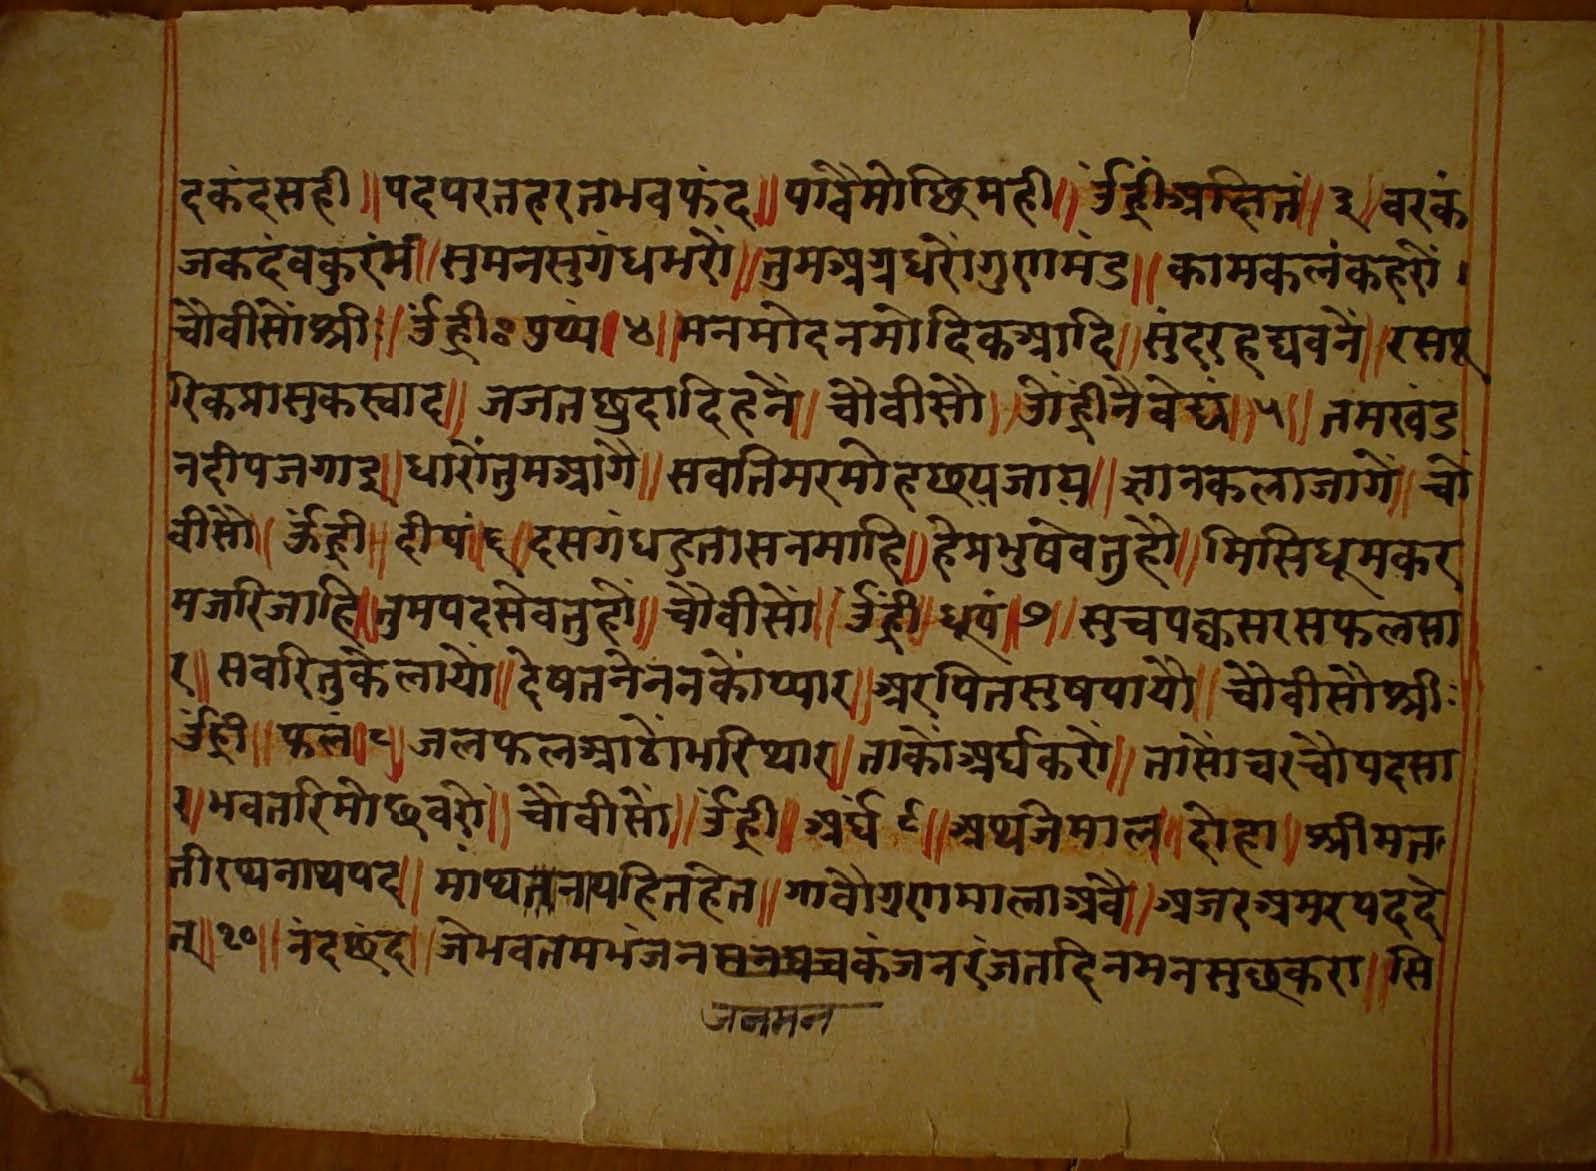 दकंदसही ॥ पदपरतहरतभवफंद ॥ पावैंमोछिमही ॥ र्उंह्रीं अक्षितं ॥ ३ ॥ वरकं
जकदंवकुरंमं ॥ सुमनसुगंधभरौं ॥ तुमअग्रधरौंगुणमंड ॥ कामकलंकहरौं ।
चौवीसौंश्री: ॥ र्उंह्री॰ पुष्पं ॥ ४ ॥ मनमोदनमोदिकआदि ॥ सुंदरहद्यवनें ॥ रसपू
रिकप्रासुकस्वाद ॥ जजतछुदादिहनें ॥ चौवीसौ ॥ ओंह्रींनैवेद्यं ॥ ५ ॥ तमखंड
नदीपजगाइ ॥ धारौंतुमआगै ॥ सवतिमरमोहछयजाय ॥ ज्ञानकलाजागें ॥ चौ
वीसौ ॥ ऊंह्री ॥ दीपं ॥ ६ ॥ दसगंधहुतासनमाहि ॥ हेप्रभुषेवतुहौं ॥ मिसिधूमकर
मजरिजाहि ॥ तुमपदसेवतुहौं ॥ चौवीसौं ॥ र्उंह्रीं ॥ धूपं ॥ ७ ॥ सुचपक्कसरसफलसा
र ॥ सवरितुकैलायौं ॥ देषतनैननकौंप्यार ॥ अरपितसुषपायौ ॥ चौवीसौश्री:
र्उंह्री ॥ फलं ॥ ८ ॥ जलफलआठौंभरिथार ॥ ताकौंअर्घकरौं ॥ तासौंचरचौंपदसा
र ॥ भवतरिमोछवरौं ॥ चौवीसौं ॥ र्उंह्री ॥ अर्घं ९ ॥ अथजैमाल ॥ दोहा ॥ श्रीमत
तीरथनाथपद ॥ मांथतनायहितहेत ॥ गावौगुणमालाअवै ॥ अजरअमरपददे
त ॥ १० ॥ नंदछंद ॥ जैभवतमभंजन कंजनरंजतदिनमनसुछकरा ॥ सि
जनमन